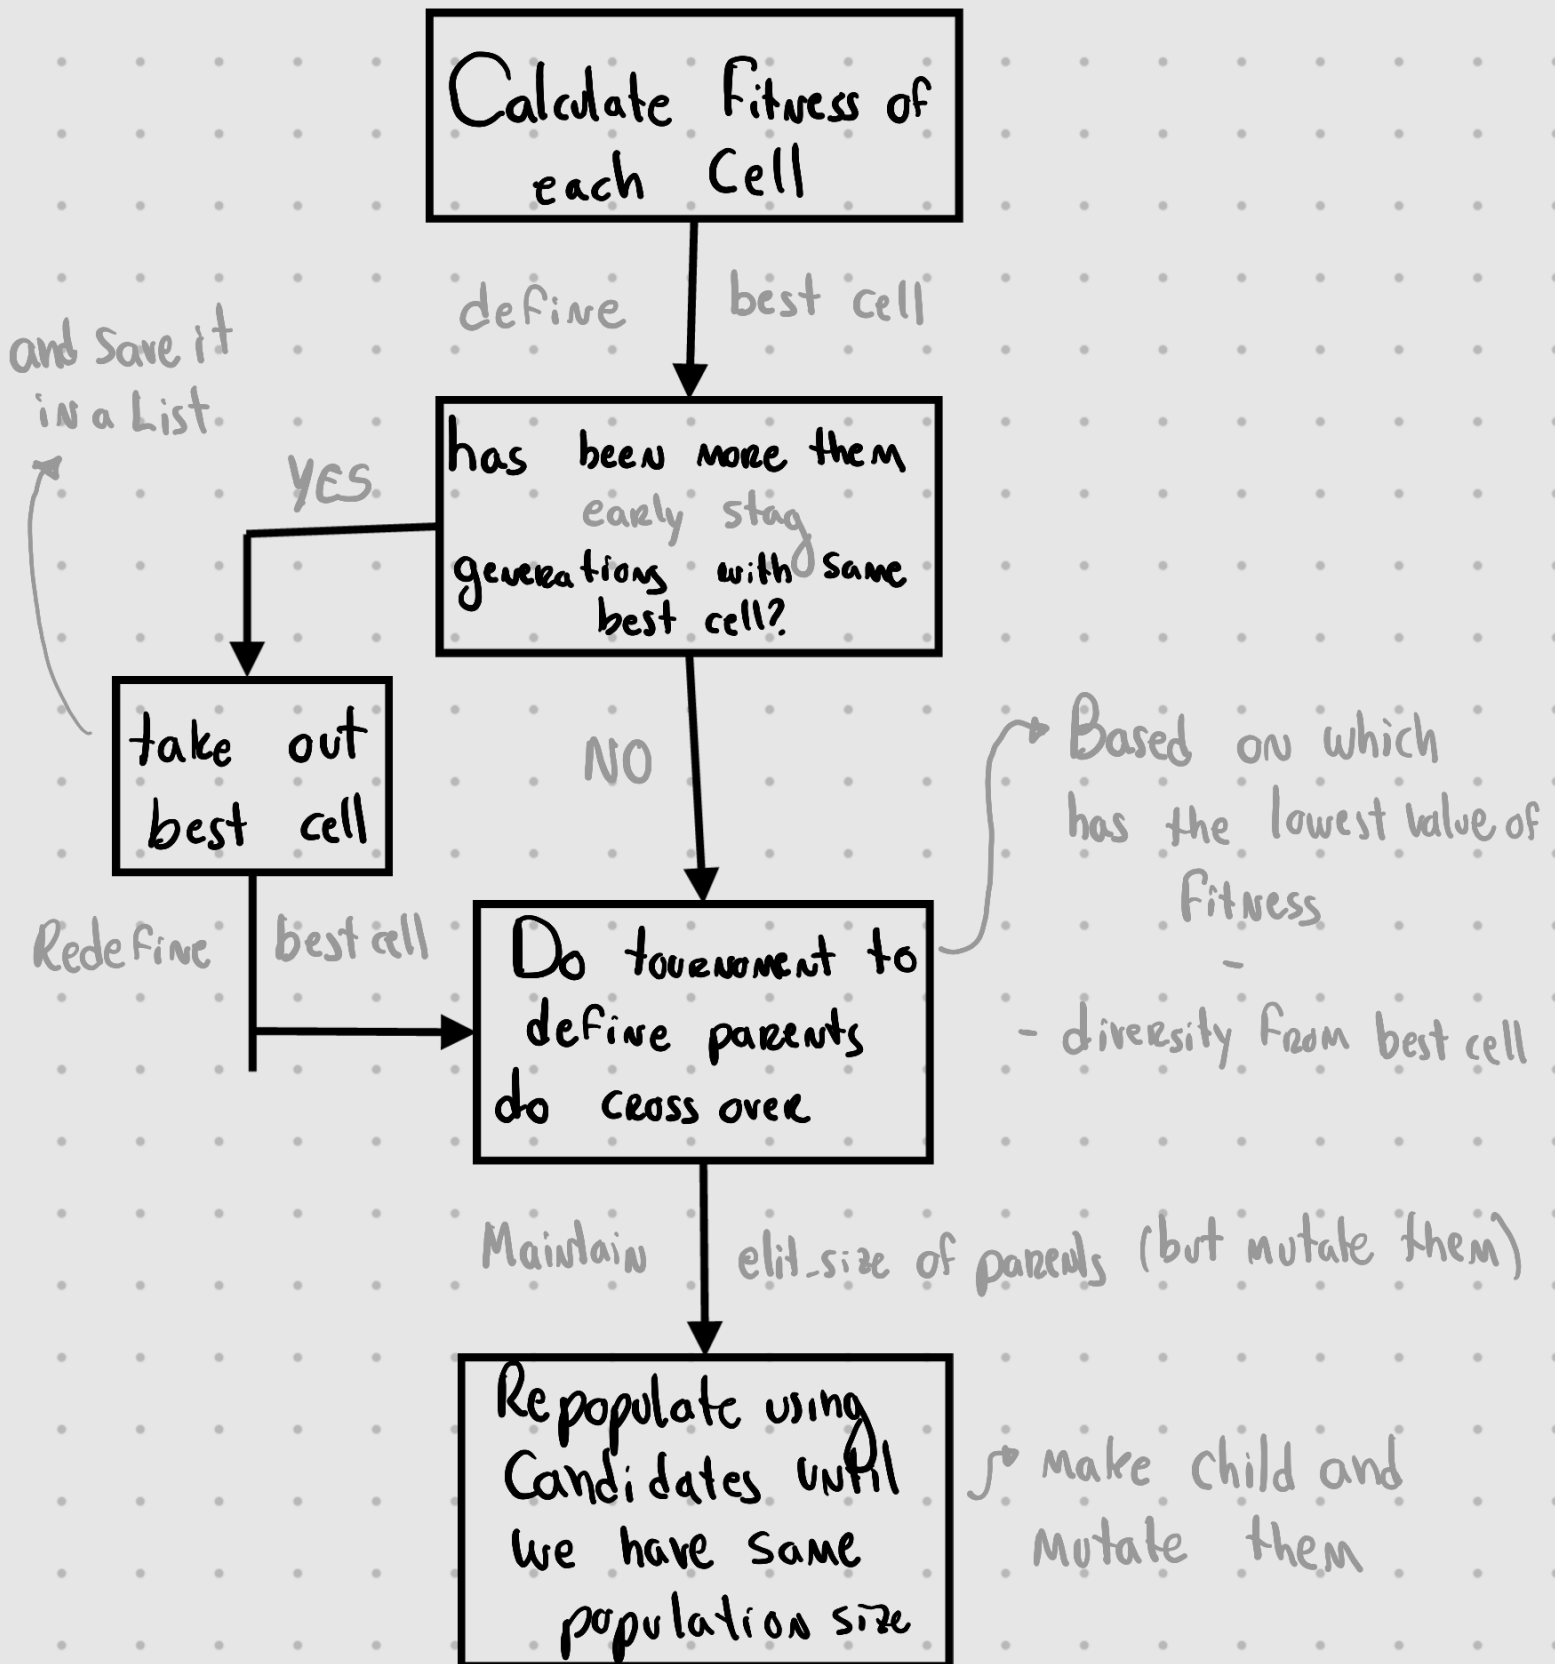 Calculate Fitness of
each Cell
define best cell
and save it
in a List
has been more them
early stag
generations with same
best cell?
YES
NO
take out
best cell
Redefine best cell
Do tournoment to
define parents
do cross over
Based on which
has the lowest value of
Fitness
-
- diversity from best cell
Maintain elit_size of parents (but mutate them)
Repopulate using
Candidates until
we have same
population size
make child and
mutate them